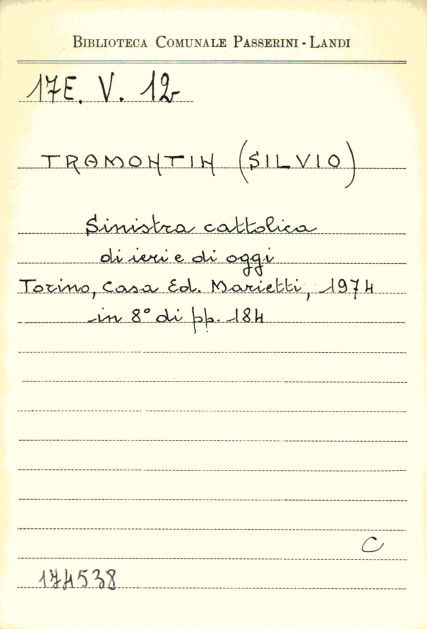 BIBLIOTECA COMUNALE PASSERINI-LANDI
17E. V. 12
TRAMONTIN (SILVIO)
Sinistra cattolica
di ieri e di oggi
Torino, Casa Ed. Marietti, 1974
in 8° di pp. 184
C
174538